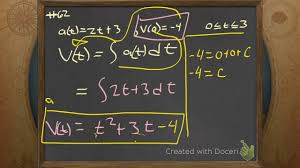 #62
a(t)=2t+3
V(0)=-4
0≤t≤3
V(t)=∫a(t)dt
-4=0+0+C
-4=C
=∫2t+3dt
a
V(t)=t²+3t-4
Created with Doceri